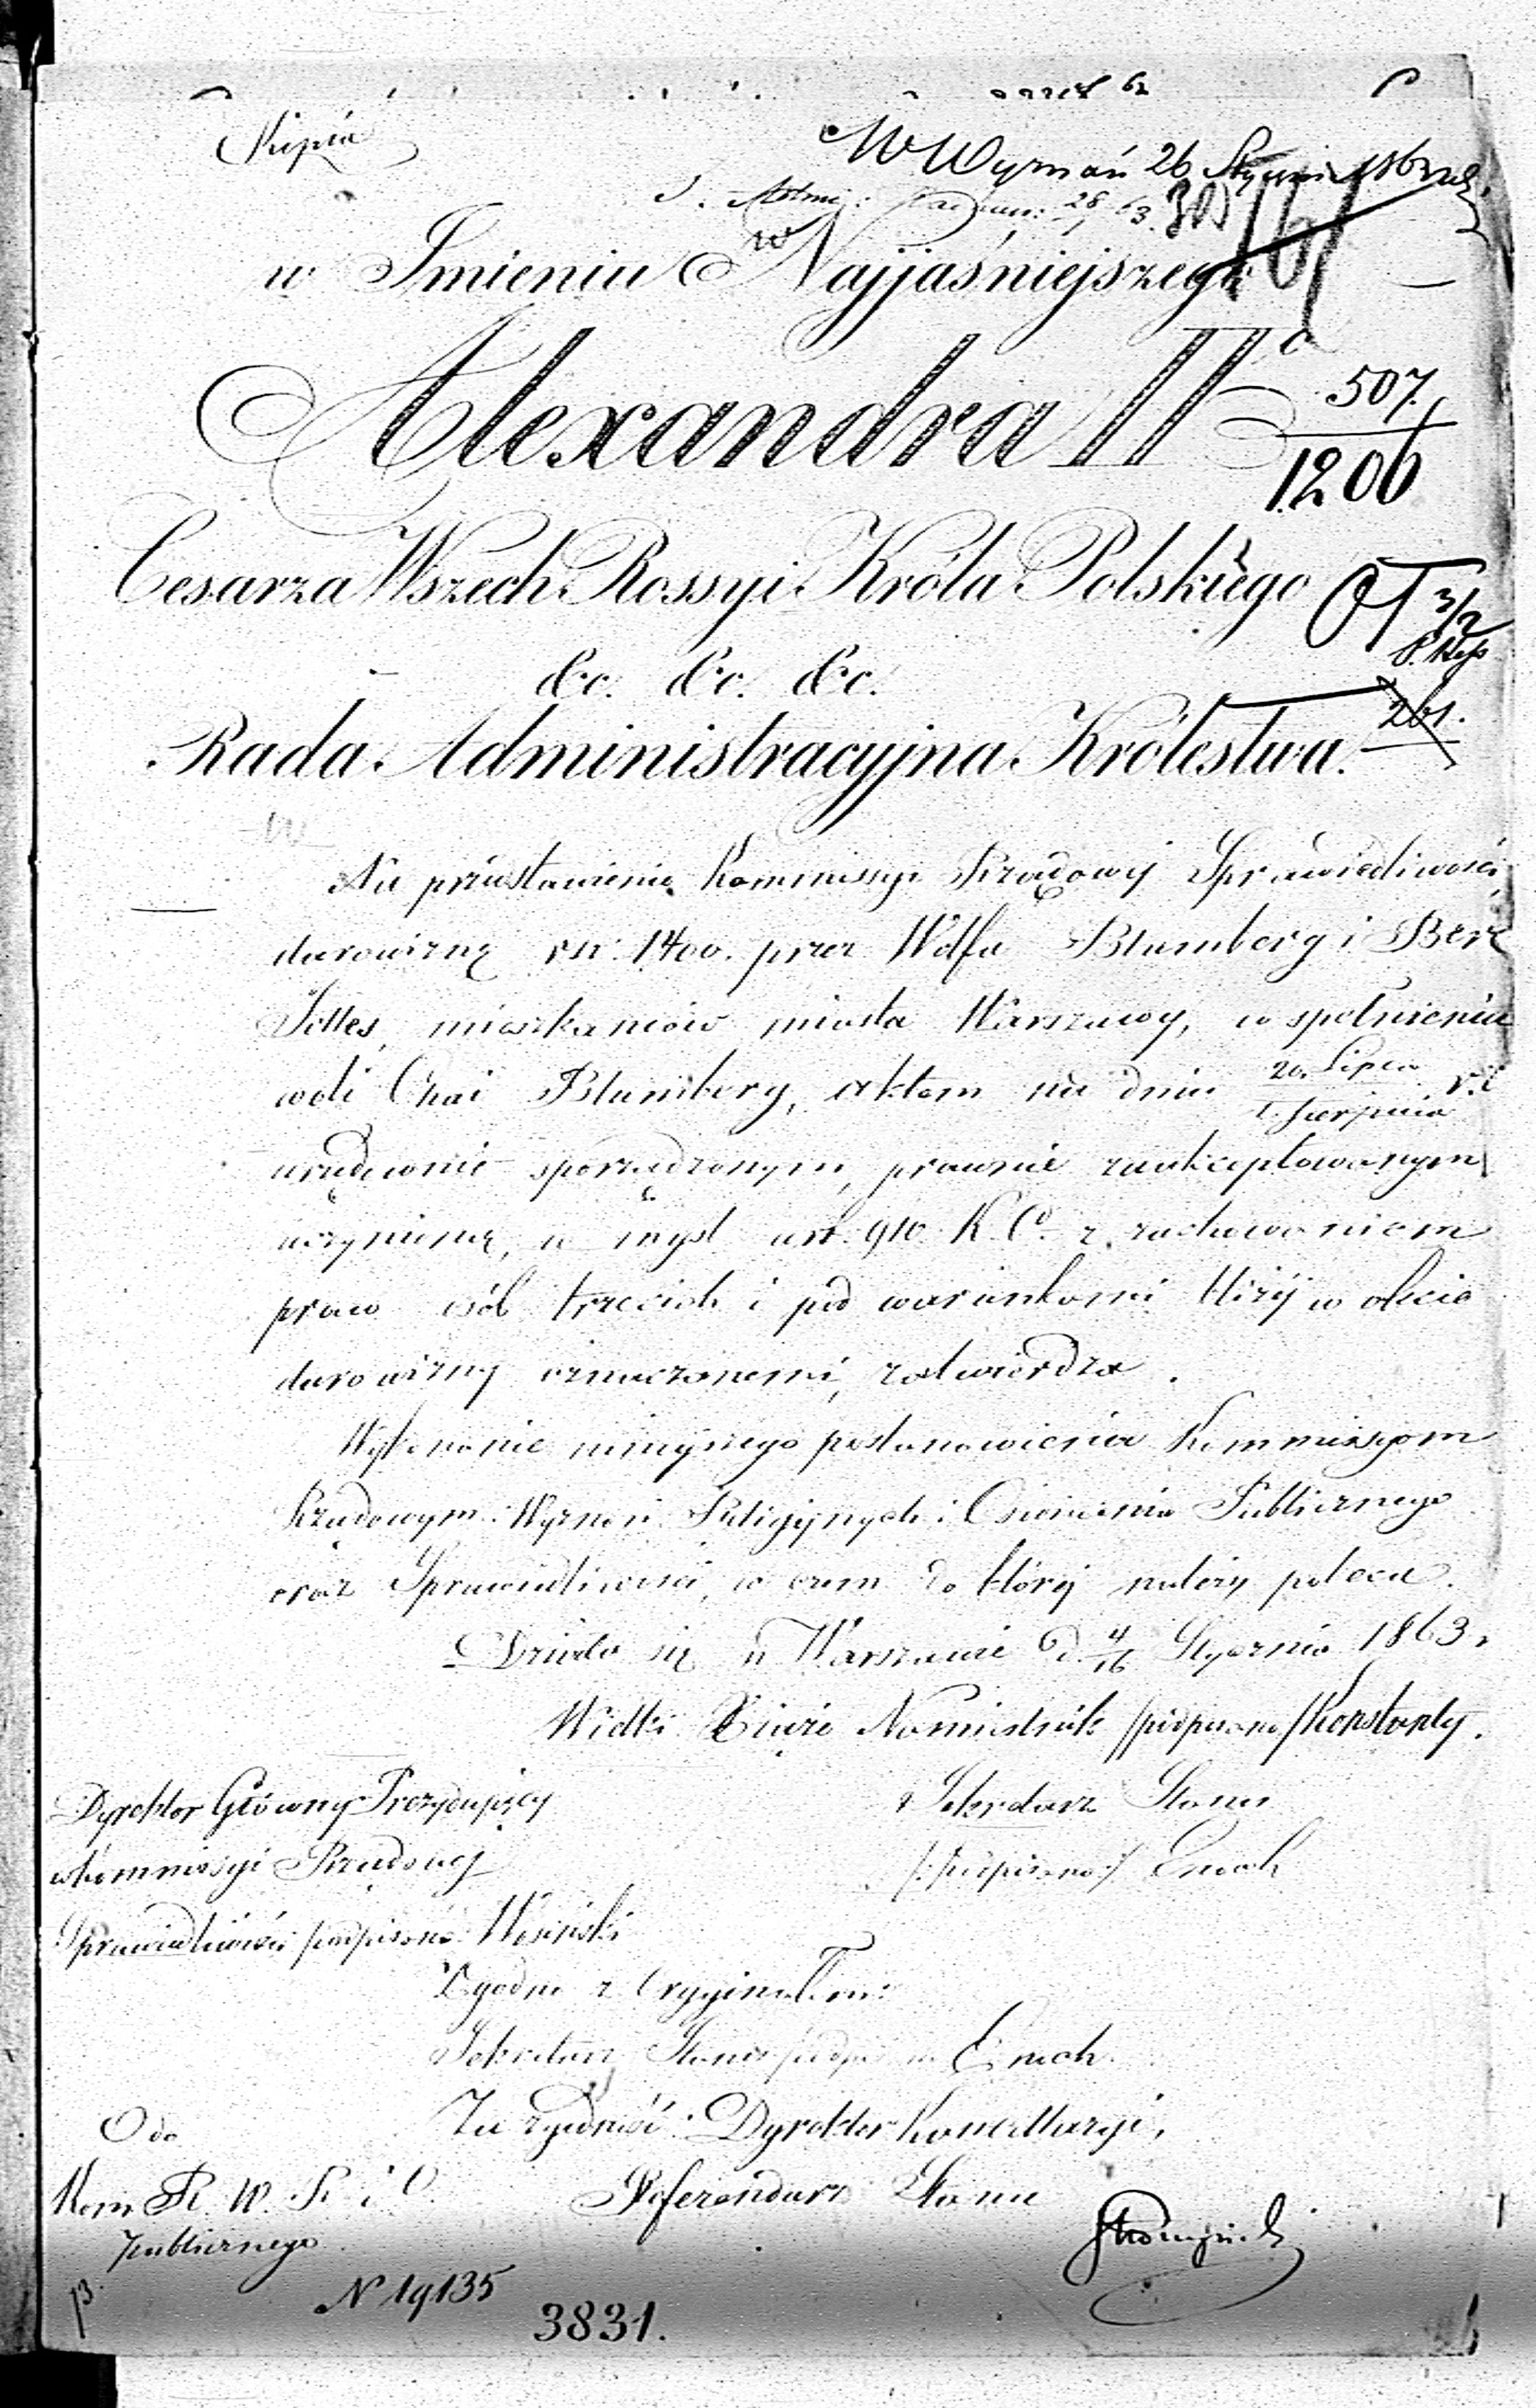 Kopia
W Wyznań 26 Stycznia 1863 r.
w Imieniu Najjaśniejszego
Alexandra II
507.
1206
Cesarza Wszech Rossyi Króla Polskiego
3/2
&c. &c. &c.
261.
Rada Administracyjna Królestwa.
Na przedstawienie Kommissyi Rządowej Sprawiedliwości,
darowiznę rsr. 1400. przez Wolfa Blumberg i Berk
Jolles, mieszkańców miasta Warszawy, w spełnieniu
woli Chai Blumberg, aktem na dniu 20. Lipca
1. Sierpnia
urzędownie sporządzonym, prawnie zaakceptowanym
uczynioną, w myśl art. 910 K. C. z zachowaniem
praw osób trzecich i pod warunkami bliżej w akcie
darowizny oznaczonemi, zatwierdza.
Wykonanie niniejszego postanowienia Kommissyom
Rządowym: Wyznań Religijnych i Oświecenia Publicznego
oraz Sprawiedliwości, w czem do której należy poleca.
Działo się w Warszawie d. 4/16 Stycznia 1863 r.
Wielki Xiąże Namiestnik /podpisano/ Konstanty.
Dyrektor Główny Prezydujący
w Kommissyi Rządowej
Sprawiedliwości podpisano
Sekretarz Stanu
/:podpisano:/ Enoch
Zgodno z Oryginałem:
Sekretarz Stanu podpisano Enoch.
Za zgodność: Dyrektor Kancellaryi,
Referendarz Stanu
O do
Kom R. W. R. i O.
Publicznego
N 19135
3831.